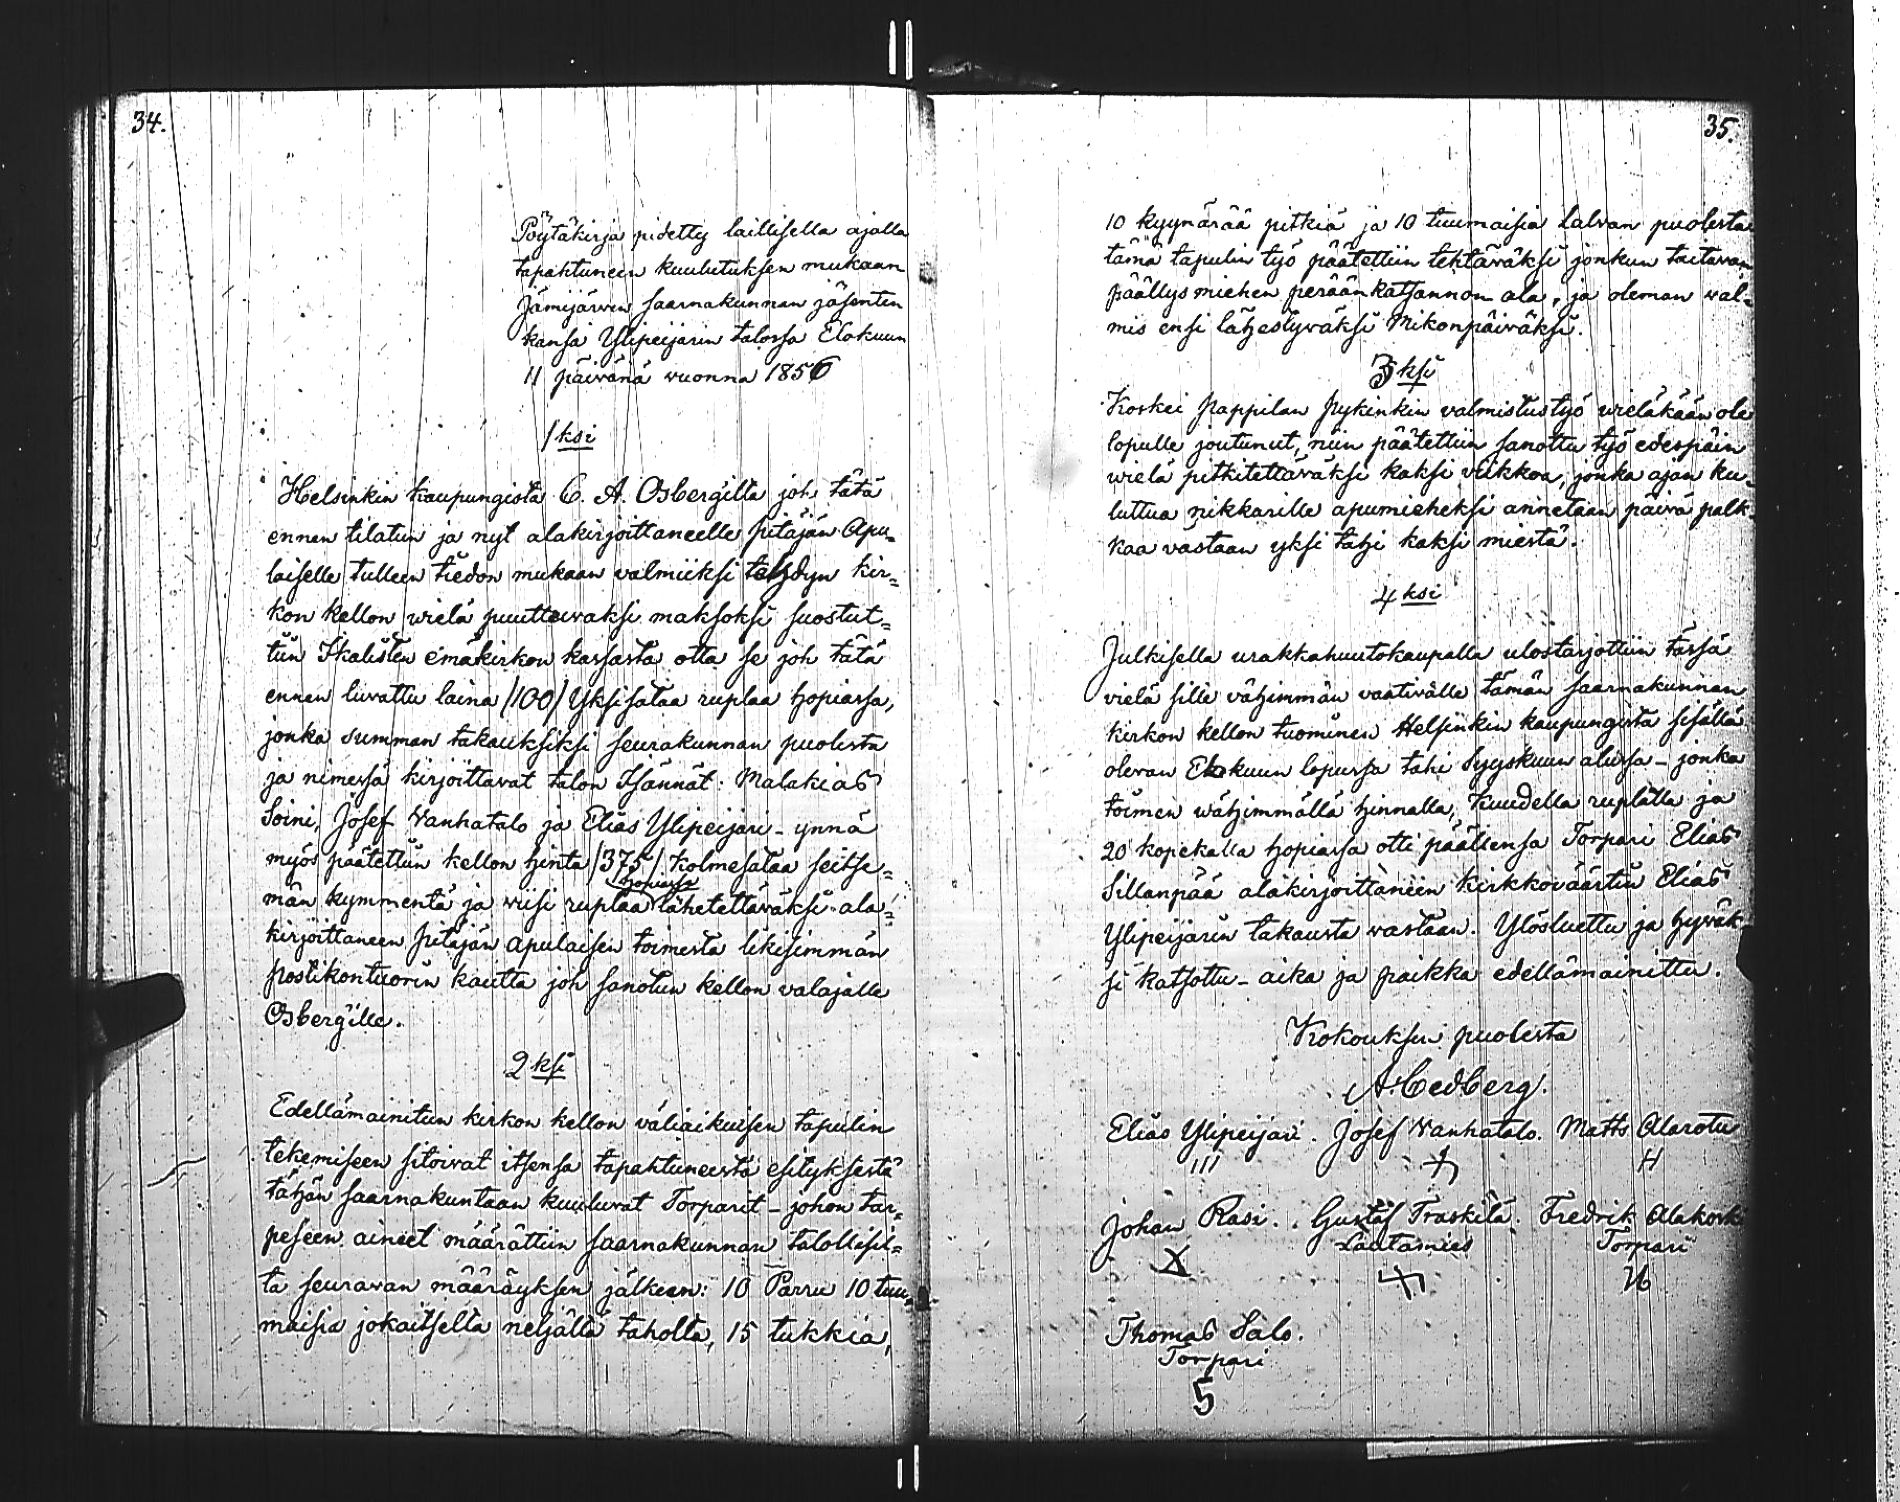 34.
Pöytäkirja pidetty laillisella ajalla
tapahtuneen kuulutuksen mukaan
Jämijärven saarnakunnan jäsenten
kansa Ylipeijarin talossa Elokuun
11 päivänä vuonna 1856
1 ksi
Helsinkin kaupungista C. A. Osberg'ilta joh tätä
ennen tilatun ja nyt alakirjoittaneelle pitäjän Apu-
laiselle tulleen tiedon mukaan valmiiksi tehdyn kir=
kon kellon wielä puuttuvaksi maksoksi suostut=
tiin Ikalisten emäkirkon kassasta otta se joh tätä
ennen luvattu laina /100/ Yksisataa ruplaa hopiassa,
jonka summan takauksiksi seurakunnan puolesta
ja nimessä kirjoittavat talon Isännät: Malakias
Soini, Josef Wanhatalo ja Elias Ylipeijari - ynnä
myös päätettiin kellon hinta /375/ Kolmesataa seitse=
män kymmentä ja viisi ruplaa hopiassa lähetettäväksi ala=
kirjoittaneen pitäjän apulaisen toimesta likisimmän
postikontuorin kautta joh sanotun kellon valajalle
Osberg'ille.
2 ksi
Edellämainitun kirkon kellon väliaikuisen tapulin
tekemiseen sitoivat itsensa tapahtuneesta esityksestä
tähän saarnakuntaan kuuluvat Torparit - johon tar=
peseen aineet määrättiin saarnakunnan talollisil=
ta seuravan määräyksen jälkeen: 10 Parru 10 tuu=
maisia jokaitselta neljältä taholta, 15 tukkia,
35.
10 kyynärää pitkiä ja 10 tuumaisia latvan puolesta
tämä tapulin työ päätettiin tehtäväksi jonkun taitavan
päällysmiehen peräänkatsannon ala, ja oleman wal=
mis ensi lähestyväksi Mikonpäiväksi.
3 ksi
Koskei Pappilan Pykinkin valmistustyö vieläkään ole
lopulle joutunut, niin päätettiin sanottu työ edespäin
wielä pitkitettäväksi kaksi viikkoa, jonka ajan ku=
luttua nikkarille apumieheksi annetaan päivä palk-
kaa vastaan yksi tahi kaksi miestä.
4 ksi
Julkisella urakkahuutokaupalla ulostarjottiin tässä
vielä sille vähimmän vaativalle tämän saarnakunnan
kirkon kellon tuominen Helsinkin kaupungista sisällä
olevan Elokuun lopussa tahi Syyskuun alussa - jonka
toimen wähimmällä hinnalla, Kuudella ruplalla ja
20 kopekalla hopiassa otti päällensa Torpari Elias
Sillanpää alakirjoittaneen Kirkkoväärtin Elias
Ylipeijarin takausta vastaan. Ylösluettu ja hyväk
si katsottu - aika ja paikka edellämainittu.
Kokouksen puolesta
A. Cedberg.
Elias Ylipeijari. Josef Wanhatalo. Matts Alarotu
Johan Rasi. Gustaf Traskila. Fredrik Alakoski
Lautamies Torpari
Thomas Salo.
Torpari
5